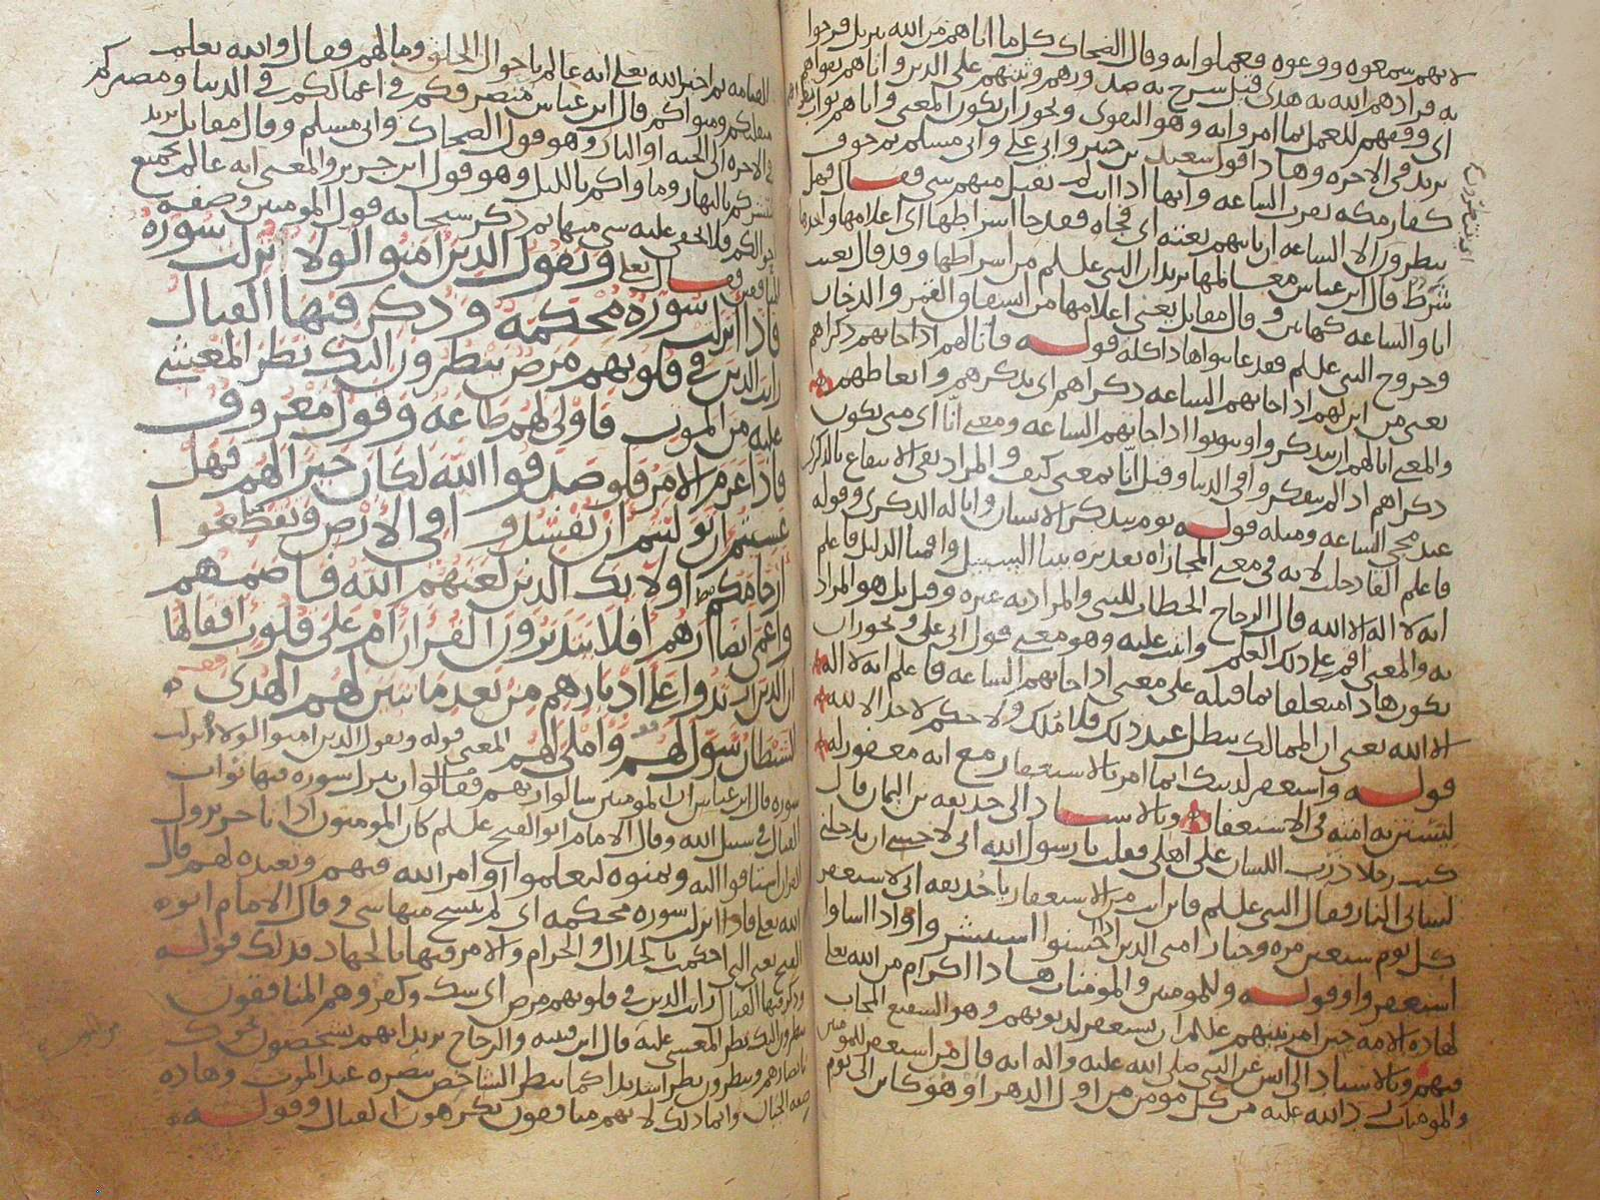 لانهم سمعوه ووعوه وعملوا به وقال الضحاك كل ما اتاهم من الله تنزيل فرحوا
به فزادهم الله به هدى قيل شرح به صدورهم وثبتهم على الدين واتاهم تقواهم
اي وفقهم للعمل بما امروا به وهو التقوى ويجوز ان يكون المعنى واتاهم ثواب تقواهم
يريد في الاخرة وهذا قول سعيد بن جبير وابي علي وابي مسلم ثم خوف
كفار مكة بقرب الساعة وانها اذا اتت لم يقبل منهم شي فقال فهل
ينظرون الا الساعة ان تاتيهم بغتة اي فجاة فقد جا اشراطها اي اعلامها واحدها
شرط قال ابن عباس معالمها يريد ان النبي علىلم من اشراطها وقد قال بعثت
انا والساعة كهاتين وقال مقاتل يعني اعلامها من انشقاق القمر والدخان
وخروج النبي علىلم فقد عاينوا هذا كله قوله فانى لهم اذا جاتهم ذكراهم
يعني من اين لهم اذا جاتهم الساعة ذكراهم اي تذكرهم واتعاظهم
والمعنى انى لهم ان يتذكروا او يتوبوا اذا جاتهم الساعة ومعنى انى اي متى يكون
ذكراهم اذا لم يتفكروا في الدنيا وقيل انى بمعنى كيف والمراد نفي الانتفاع بالذكرى
عند مجي الساعة ومثله قوله يوميذ يتذكر الانسان وانى له الذكرى وقوله
فاعلم الفا دخلت لانه في معنى المجازاة تقديره بينا السبيل واقمنا الدليل فاعلم
انه لا اله الا الله قال الزجاج الخطاب للنبي والمراد به غيره وقيل بل هو المراد
به والمعنى اقم على ذلك العلم واثبت عليه وهو معنى قول ابي علي ويجوز ان
يكون هذا متعلقا بما قبله على معنى اذا جاتهم الساعة فاعلم انه لا اله
الا الله يعني ان الممالك تبطل عند ذلك فلا ملك ولا حكم لاحد الا لله
قوله واستغفر لذنبك انما امر بالاستغفار مع انه مغفور له
ليستن به امته في الاستغفار وبالاسناد الى حذيفة بن اليمان قال
كنت رجلا ذرب اللسان على اهلي فقلت يا رسول الله اني لاخشى ان يدخلني
لساني النار فقال النبي علىلم فاين انت من الاستغفار يا حذيفة اني لاستغفر
كل يوم سبعين مرة وخيار امتي الذين اذا احسنوا استبشروا واذا اساوا
استغفروا وقوله وللمومنين والمومنات هذا اكرام من الله تعالى
لهاذه الامة حين امر نبيهم علىلم ان يستغفر لذنوبهم وهو الشفيع المجاب
فيهم وبالاسناد الى انس عن النبي صلى الله عليه واله انه قال من استغفر للمومنين
والمومنات رد الله عليه من كل مومن من اول الدهر او هو كاين الى يوم
القيامة ثم اخبر الله تعالى انه عالم باحوال الخلق ومالهم فقال والله يعلم
متقلبكم ومثواكم قال ابن عباس متصرفكم في اعمالكم في الدنيا ومصيركم
في الاخرة الى الجنة او النار وهو قول الضحاك وابي مسلم وقال مقاتل يريد
منتشركم بالنهار وماواكم بالليل وهو قول ابن جرير والمعنى انه عالم بجميع
احوالكم فلا يخفى عليه شي منها ثم ذكر سبحانه قول المومنين وصفة
المنافقين فقال تعالى ويقول الذين امنوا لولا نزلت سورة
فاذا انزلت سورة محكمة وذكر فيها القتال
رايت الذين في قلوبهم مرض ينظرون اليك نظر المغشي
عليه من الموت فاولى لهم طاعة وقول معروف
فاذا عزم الامر فلو صدقوا الله لكان خيرا لهم فهل
عسيتم ان توليتم ان تفسدوا في الارض وتقطعوا
ارحامكم اولايك الذين لعنهم الله فاصمهم
واعمى ابصارهم افلا يتدبرون القران ام على قلوب اقفالها
ان الذين ارتدوا على ادبارهم من بعد ما تبين لهم الهدى
الشيطان سول لهم واملى لهم المعنى قوله ويقول الذين امنوا لولا انزلت
سورة قال ابن عباس ان المومنين سالوا ربهم فقالوا ان ينزل سورة فيها ثواب
القتال في سبيل الله وقال الامام ابو الفتح علىلم كان المومنون اذا تاخر نزول
القران اشتاقوا اليه وتمنوه ليعلموا اوامر الله فيهم وتعبده لهم قال
الله تعالى فاذا انزلت سورة محكمة اي لم ينسخ منها شي وقال الامام ابو
الفتح يعني التي احكمت بالحلال والحرام والامر فيها بالجهاد فذلك قوله
وذكر فيها القتال رايت الذين في قلوبهم مرض اي شك وكفر وهم المنافقون
ينظرون اليك نظر المغشي عليه قال ابن قتيبة والزجاج يريد انهم يشخصون نحوك
بابصارهم وينظرون نظرا شديدا كما ينظر الشاخص ببصره عند الموت وهاذه
صفة الجبان وانما ذلك لانهم منافقون يكرهون القتال وقوله